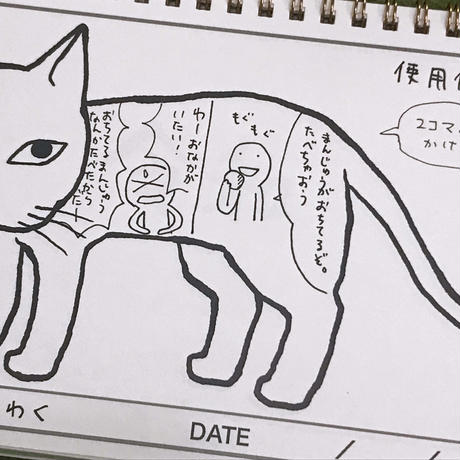 使用
2コマ
かけ
まんじゅうがおちてるぞ。
たべちゃおう
もぐ
もぐ
わーおなかが
いたい!
おちてるまんじゅう
なんかたべたからだー
わく
DATE / /